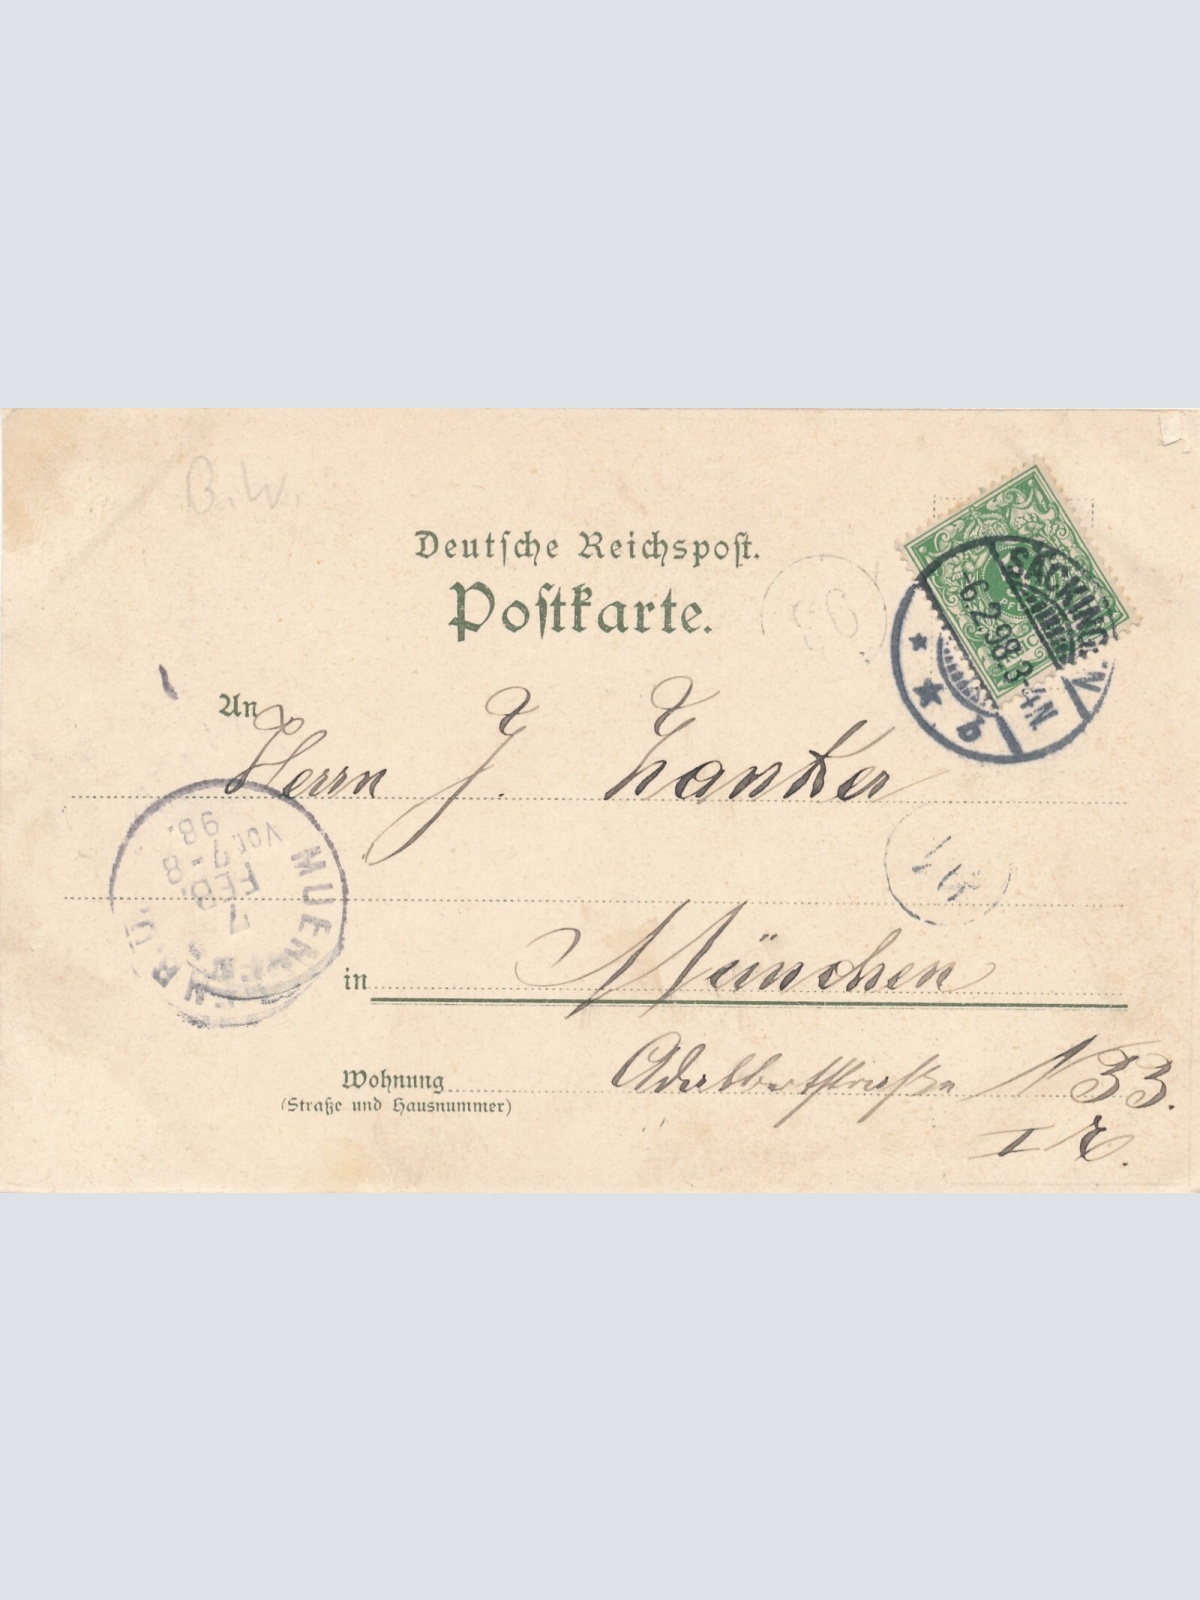 B.W.
Deutsche Reichspost.
Postkarte.
SÄCKINGEN
6.2.98.3-4N
b
An Herrn J. Zanker
MUENCHEN
7
FEB.
7-8
Vor.
98.
in München
Wohnung Adalbertstraße N 33.
(Straße und Hausnummer)
I